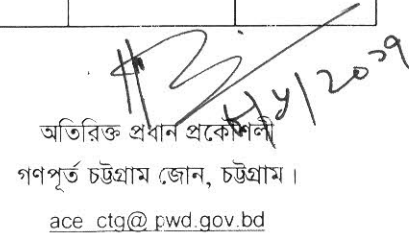 অতিরিক্ত প্রধান প্রকৌশলী
গণপূর্ত চট্টগ্রাম জোন, চট্টগ্রাম।
ace_ctg@pwd.gov.bd